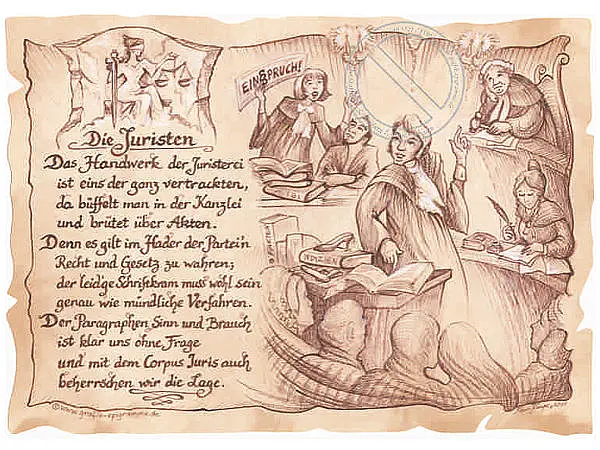 Die Juristen
Das Handwerk der Juristerei
ist eins der ganz vertrackten,
da büffelt man in der Kanzlei
und brütet über Akten.
Denn es gilt im Hader der Partei'n
Recht und Gesetz zu wahren;
der leidge Schriftkram muss wohl sein
genau wie mündliche Verfahren.
Der Paragraphen Sinn und Brauch
ist klar uns ohne Frage
und mit dem Corpus Juris auch
beherrschen wir die Lage.
EINSPRUCH!
INDIZIEN